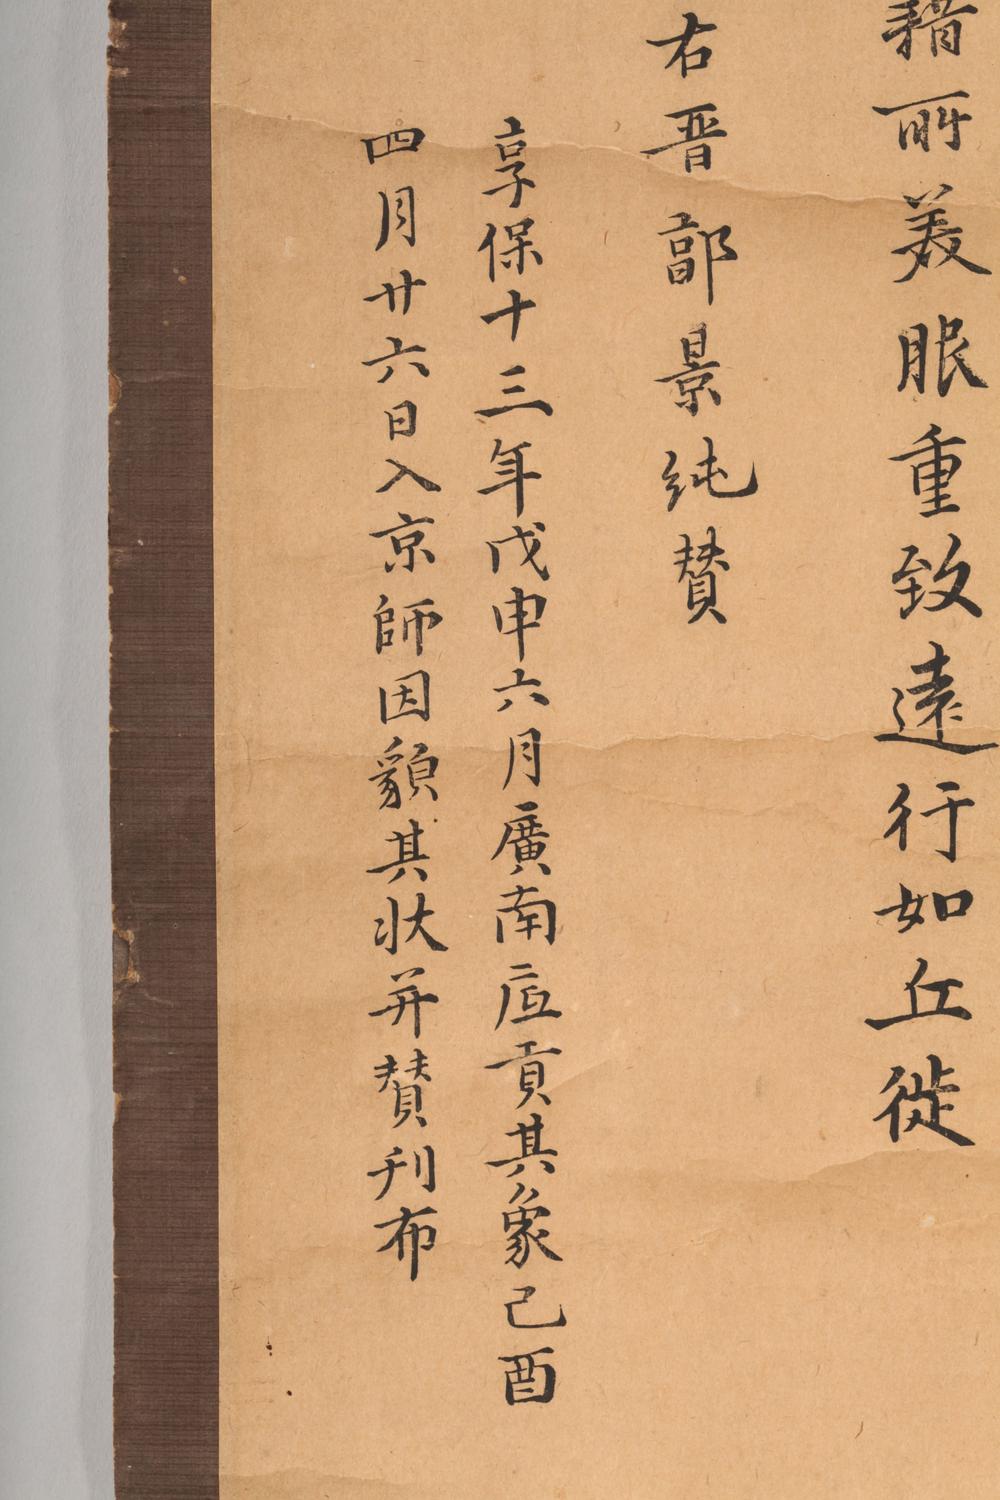 所美服重致遠行如丘徙
右晋郭景純賛
享保十三年戊申六月廣南貢其象己酉
四月廿六日入京師因䫉其状并賛刊布